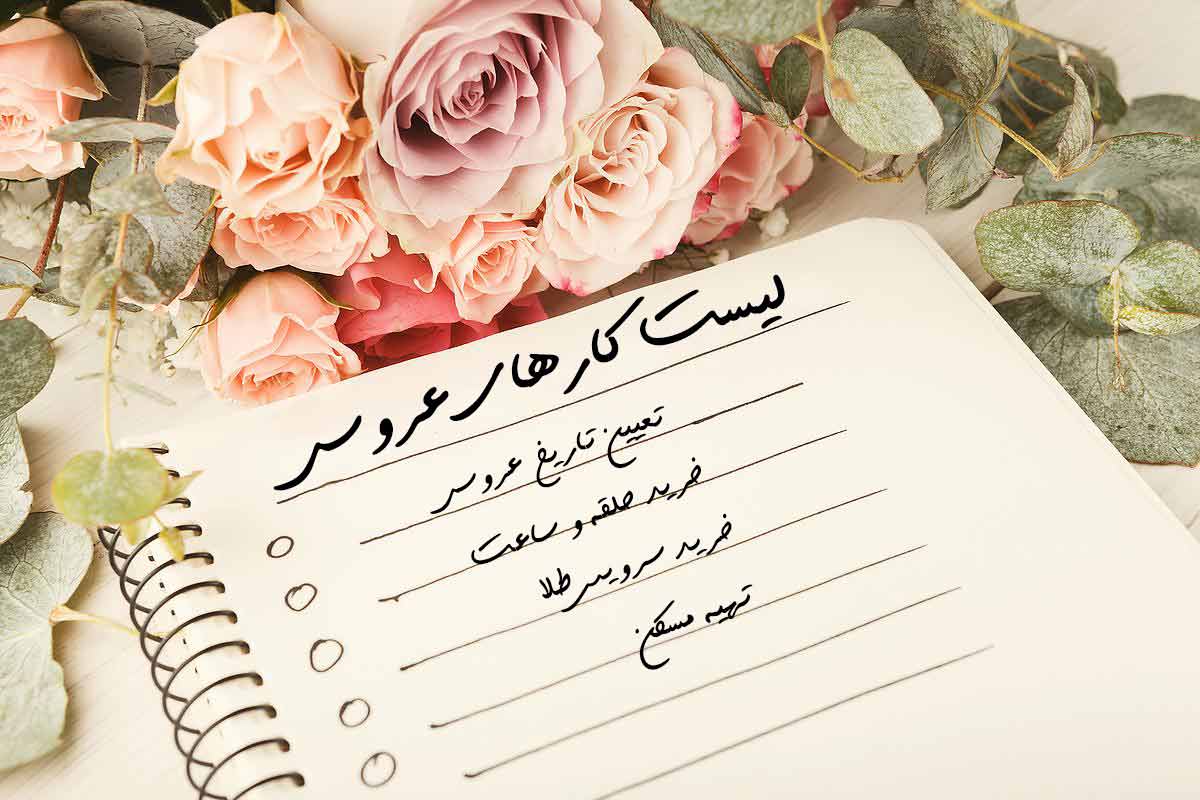 لیست کارهای عروس
تعیین تاریخ عروسی
خرید حلقه و ساعت
خرید سرویس طلا
تهیه مسکن